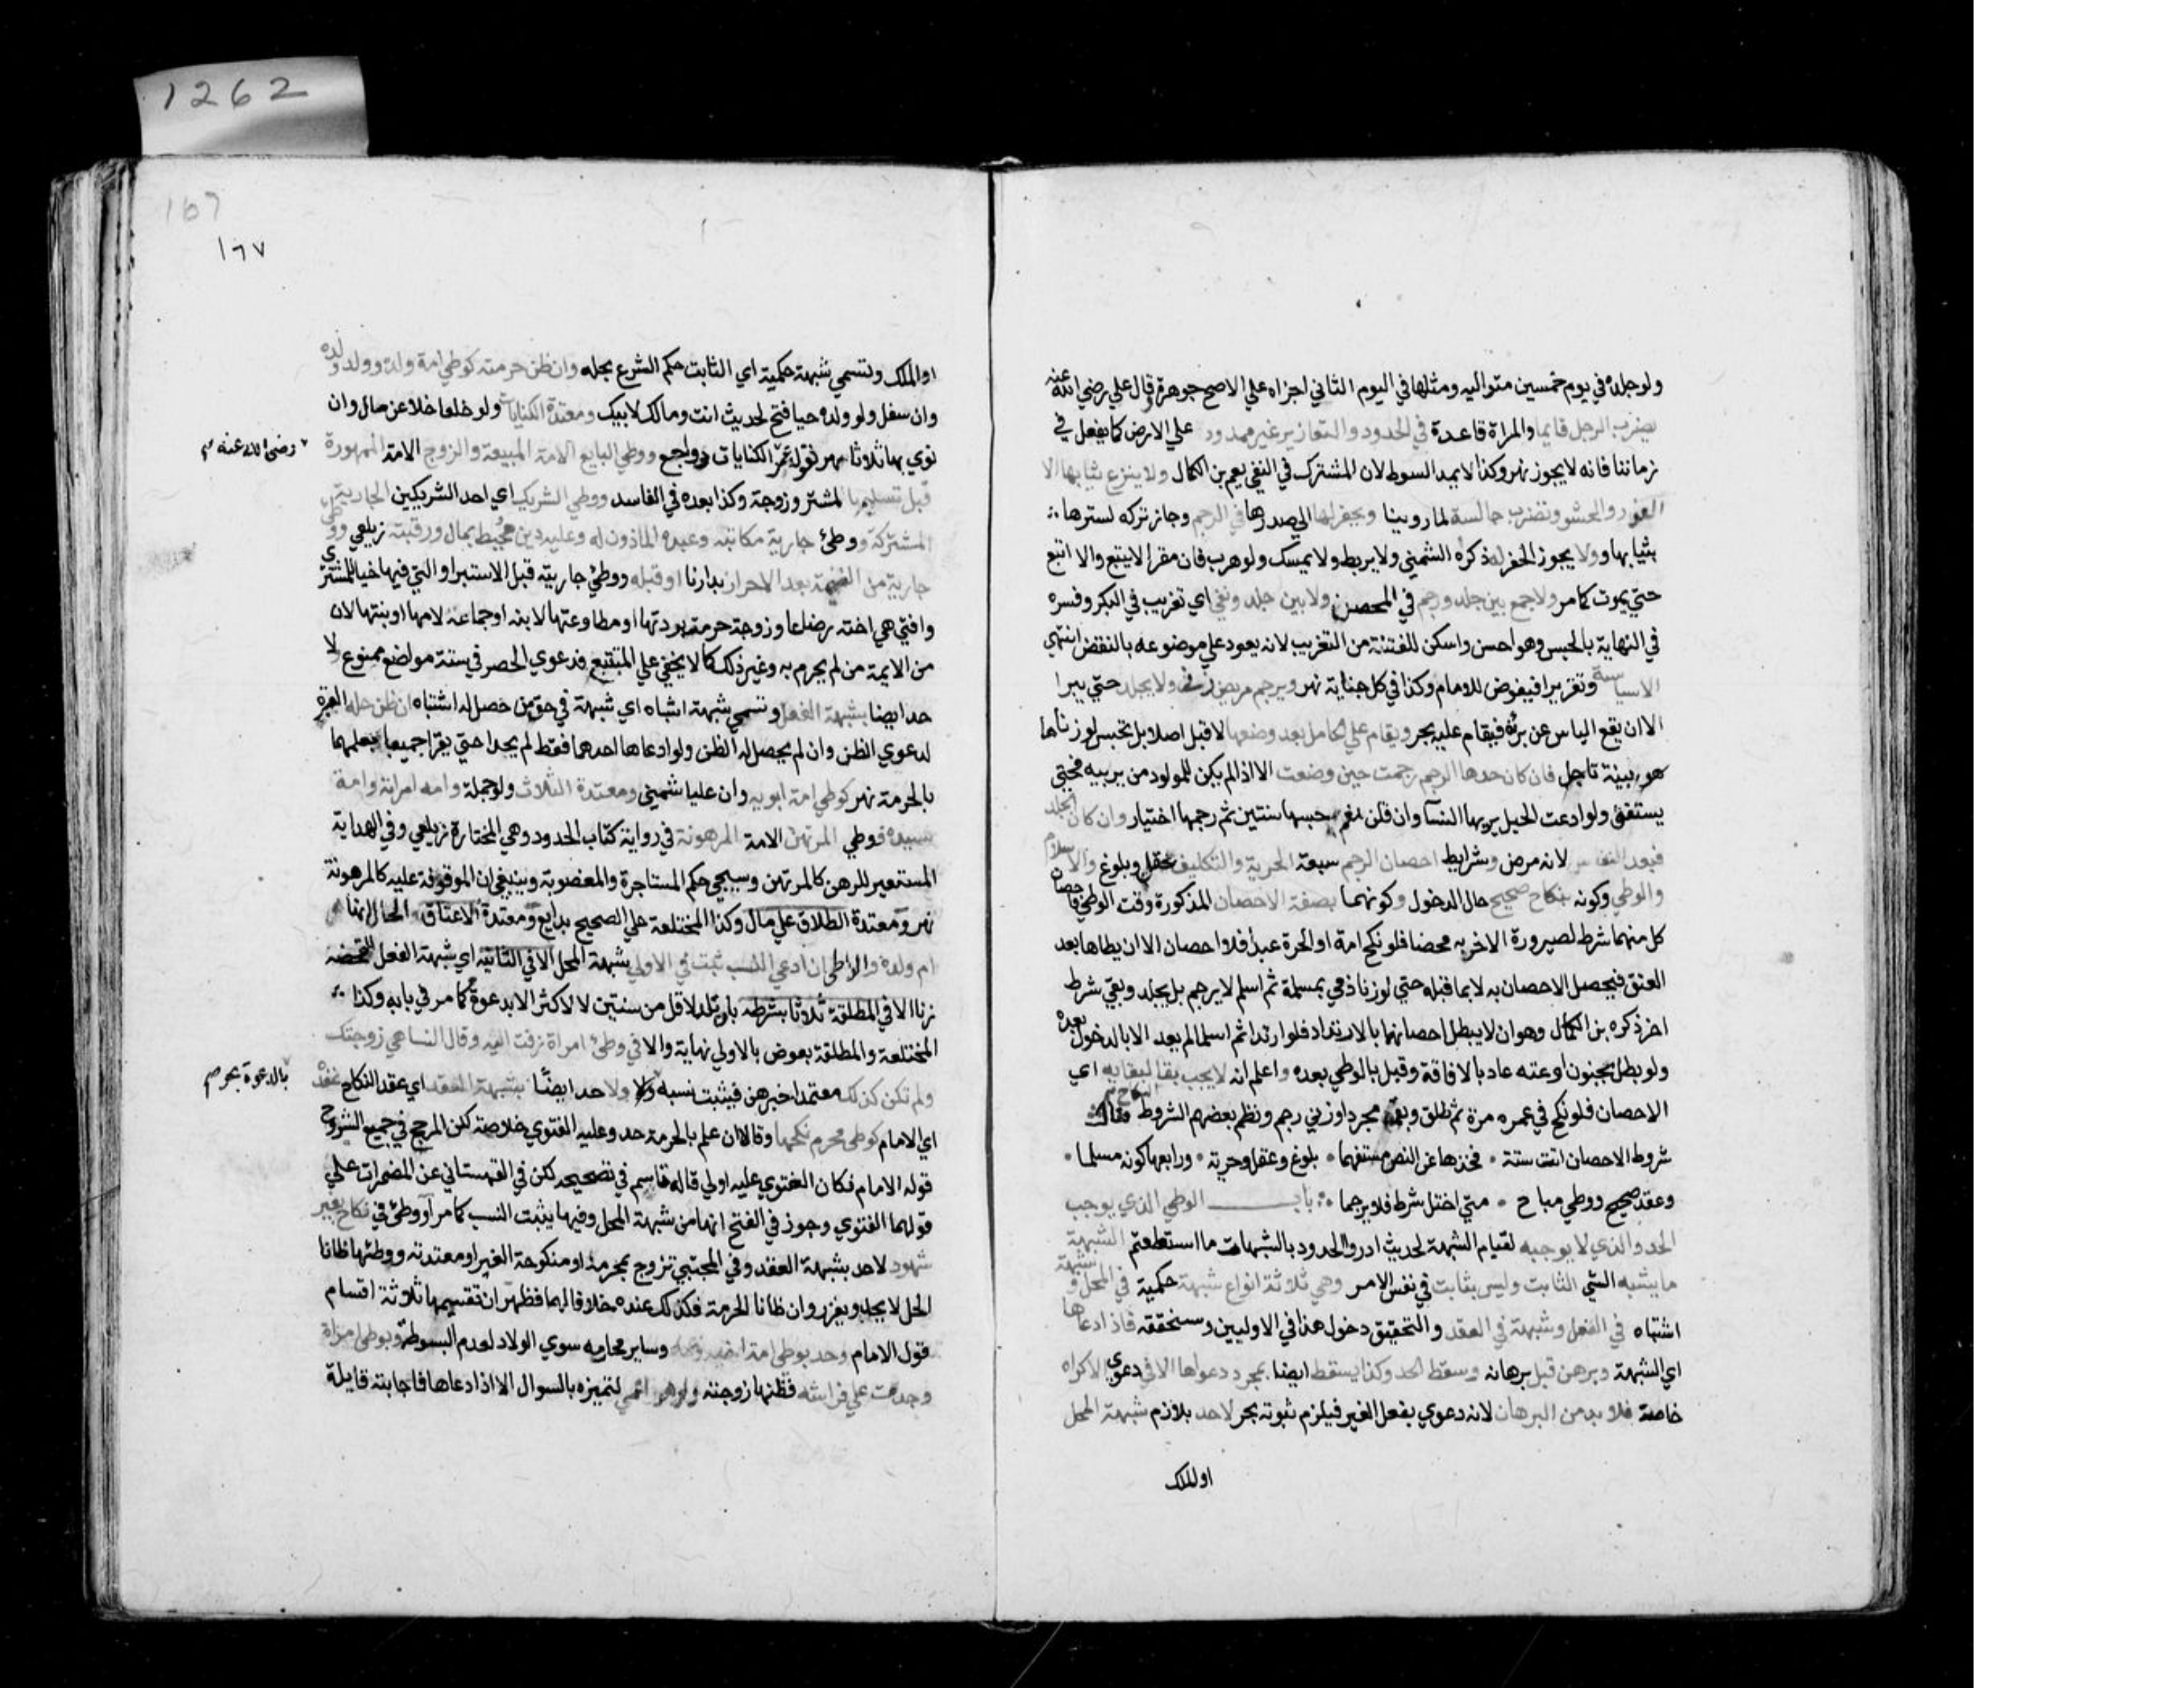 ولو جلده في يوم خمسين متواليه ومثلها في اليوم الثاني اجزاه علي الاصح جوهرة وقال علي رضي الله عنه
يضرب الرجل قايما والمراة قاعدة في الحدود والتعازير غير ممدود علي الارض كما يفعل في
زماننا فانه لا يجوز نهر وكذا لا يمد السوط لان المشترك في النفي يعم بن الكمال ولا ينزع ثيابها الا
الفرو والحشو وتضرب جالسة لما روينا ويحفر لها الي صدرها في الرجم وجاز تركه لسترها
بثيابها ولا يجوز الحفر له ذكره الشمني ولا يربط ولا يمسك ولو هرب فان مقرا لا يتبع والا اتبع
حتي يموت كما مر ولا جمع بين جلد ورجم في المحصن ولا بين جلد ونفي اي تغريب في البكر وفسره
في النهاية بالحبس وهو احسن واسكن للفتنة من التغريب لانه يعود علي موضوعه بالنقض انتهي
الا سياسة وتعزيرا فيفوض للامام وكذا في كل جناية نهر ويرجم مريض زني ولا يجلد حتي يبرا
الا ان يقع الياس عن برئه فيقام عليه بحر ويقام علي الحامل بعد وضعها لا قبل اصلا بل تحبس لو زناها
ببينة فان كان حدها الرجم رجمت حين وضعت الا اذا لم يكن للمولود من يربيه فحتي
يستغني ولو ادعت الحبل يريها النسآ وان قلن نعم حبسها سنتين ثم رجمها اختيار وان كان الجلد
فبعد النفاس لانه مرض وشرايط احصان الرجم سبعة الحرية والتكليف عقل وبلوغ والاسلام
والوطي وكونه بنكاح صحيح حال الدخول وكونهما بصفة الاحصان المذكورة وقت الوطي فاحصان
كل منهما شرط لصيرورة الاخر به محصنا فلو نكح امة او الحرة عبدا فلا احصان الا ان يطاها بعد
العتق فيحصل الاحصان به لا بما قبله حتي لو زنا ذمي بمسلمة ثم اسلم لا يرجم بل يجلد وبقي شرط
اخر ذكره بن الكمال وهو ان لا يبطل احصانهما بالارتداد فلو ارتدا ثم اسلما لم يعد الا بالدخول بعده
ولو بطل بجنون او عته عاد بالافاقة وقيل بالوطي بعده واعلم انه لا يجب بقا النكاح لبقايه اي
الاحصان فلو نكح في عمره مرة ثم طلق وبقي مجردا وزني رجم ونظم بعضهم الشروط فقال
شروط الاحصان اتت ستة فخذها عن النص مستفهما بلوغ وعقل وحرية ورابعها كونه مسلما
وعقد صحيح ووطي مباح متي اختل شرط فلا يرجما باب الوطي الذي يوجب
الحد والذي لا يوجبه لقيام الشبهة لحديث ادروا الحدود بالشبهات ما استطعتم الشبهة
ما يشبه الشي الثابت وليس بثابت في نفس الامر وهي ثلاثة انواع شبهة حكمية في المحل وشبهة
اشتباه في الفعل وشبهة في العقد والتحقيق دخول هذا في الاوليين وسنحققه فاذا ادعاها
اي الشبهة وبرهن قبل برهانه وسقط الحد وكذا يسقط ايضا بمجرد دعواها الا في دعوي الاكراه
خاصة فلا بد من البرهان لانه دعوي بفعل الغير فيلزم ثبوته بحر لا حد بلازم شبهة المحل
او الملك
1262
167
١٦٧
او الملك وتسمي شبهة حكمية اي الثابت حكم الشرع بحله وان ظن حرمته كوطي امة ولده وولد ولده
وان سفل ولو ولده حيا فتح لحديث انت ومالك لابيك ومعتدة الكنايات ولو خلعا خلا عن مال وان
نوي بها ثلاثا نهر لقول عمر الكنايات رواجع ووطي البايع الامة المبيعة والزوج الامة الممهورة
رضي الله عنه
قبل تسليمها لمشتر وزوجة وكذا بعده في الفاسد ووطي الشريك اي احد الشريكين الجارية
المشتركة ووطئ جارية مكاتبه وعبده الماذون له وعليه دين محيط بماله ورقبته زيلعي ووطي
جارية من الغنيمة بعد الاحراز بدارنا او قبله ووطئ جاريته قبل الاستبرا والتي فيها خيار للمشتري
والتي هي اخته رضاعا وزوجة حرمت بردتها او مطاوعتها لابنه او جماعه لامها او بنتها لان
من الايمة من لم يحرم به وغير ذلك كما لا يخفي علي المتتبع فدعوي الحصر في ستة مواضع ممنوع ولا
حد ايضا بشبهة الفعل وتسمي شبهة اشتباه اي شبهة في حق من حصل له اشتباه ان ظن حله العبرة
لدعوي الظن وان لم يحصل له الظن ولو ادعاها احدهما فقط لم يحدا حتي يقرا جميعا بعلمهما
بالحرمة نهر كوطي امة ابويه وان عليا شمني ومعتدة الثلاث ولو جملة وامة امراته وامة
سيده ووطي المرتهن الامة المرهونة في رواية كتاب الحدود وهي المختارة زيلعي وفي الهداية
المستعير للرهن كالمرتهن وسيجي حكم المستاجرة والمغصوبة وينبغي ان الموقوفة عليه كالمرهونة
نهر ومعتدة الطلاق علي مال وكذا المختلعة علي الصحيح بدايع ومعتدة الاعتاق والحال انها
ام ولده والواطئ ان ادعي النسب ثبت في الاولي بشبهة المحل لا في الثانية اي شبهة الفعل لتمحضه
زنا الا في المطلقة ثلاثا بشرطه بان تلد لاقل من سنتين لا لاكثر الا بدعوة كما مر في بابه وكذا
المختلعة والمطلقة بعوض بالاولي نهاية والا في وطئ امراة زفت اليه وقال النسا هي زوجتك
ولم تكن كذلك معتمدا خبرهن فيثبت نسبه ولا حد ايضًا بشبهة العقد اي عقد النكاح عنده
بالدعوة بحر
اي الامام كوطي محرم نكحها وقالا ان علم بالحرمة حد وعليه الفتوي خلاصة لكن المرجح في جميع الشروح
قوله الامام فكان الفتوي عليه اولي قاله قاسم في تصحيحه لكن في القهستاني عن المضمرات علي
قولهما الفتوي وجوز في الفتح انها من شبهة المحل وفيها يثبت النسب كما مر او وطئ في نكاح بغير
شهود لا حد بشبهة العقد وفي المجتبي تزوج بمحرمه او منكوحة الغير او معتدته ووطئها ظانا
الحل لا يحد ويعزر وان ظانا الحرمة فكذلك عنده خلافا لهما فظهر ان تقسيمها ثلاثة اقسام
قول الامام وحد بوطي امة اخيه وعمه وساير محارمه سوي الولاد لعدم البسوطة وبوطي امراة
وجدت علي فراشه فظنها زوجته ولو هو اعمي لتميزه بالسوال الا اذا دعاها فاجابته قايلة